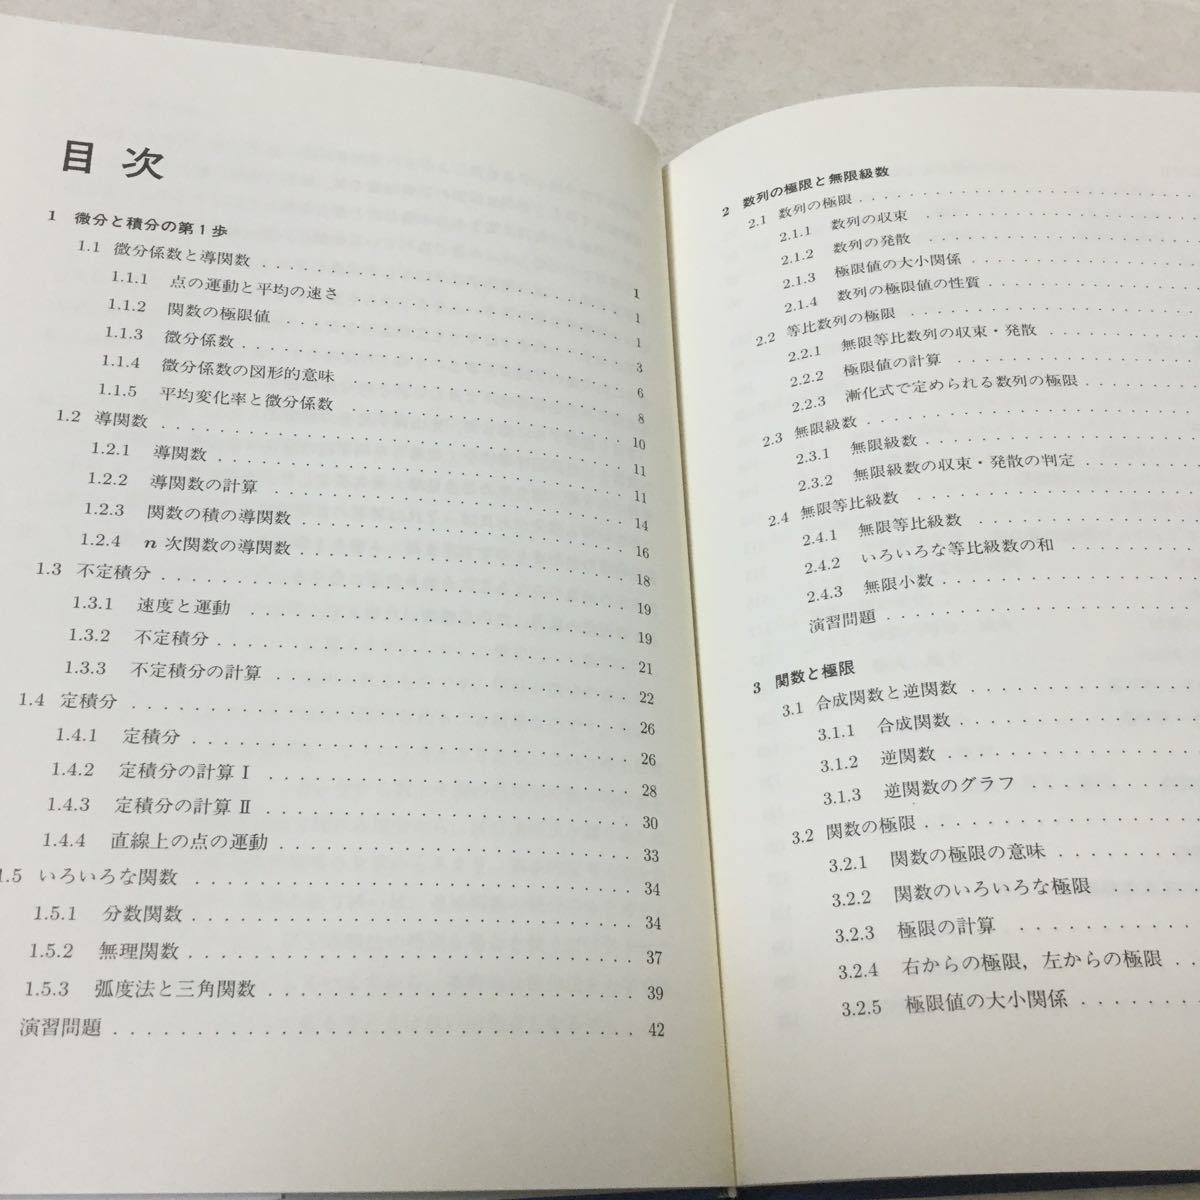 目次
1 微分と積分の第1歩 1
1.1 微分係数と導関数 1
1.1.1 点の運動と平均の速さ 1
1.1.2 関数の極限値 3
1.1.3 微分係数 6
1.1.4 微分係数の図形的意味 8
1.1.5 平均変化率と微分係数 10
1.2 導関数 11
1.2.1 導関数 11
1.2.2 導関数の計算 14
1.2.3 関数の積の導関数 16
1.2.4 n次関数の導関数 18
1.3 不定積分 19
1.3.1 速度と運動 19
1.3.2 不定積分 21
1.3.3 不定積分の計算 22
1.4 定積分 26
1.4.1 定積分 26
1.4.2 定積分の計算 I 28
1.4.3 定積分の計算 II 30
1.4.4 直線上の点の運動 33
1.5 いろいろな関数 34
1.5.1 分数関数 34
1.5.2 無理関数 37
1.5.3 弧度法と三角関数 39
演習問題 42
2 数列の極限と無限級数
2.1 数列の極限
2.1.1 数列の収束
2.1.2 数列の発散
2.1.3 極限値の大小関係
2.1.4 数列の極限値の性質
2.2 等比数列の極限
2.2.1 無限等比数列の収束・発散
2.2.2 極限値の計算
2.2.3 漸化式で定められる数列の極限
2.3 無限級数
2.3.1 無限級数
2.3.2 無限級数の収束・発散の判定
2.4 無限等比級数
2.4.1 無限等比級数
2.4.2 いろいろな等比級数の和
2.4.3 無限小数
演習問題
3 関数と極限
3.1 合成関数と逆関数
3.1.1 合成関数
3.1.2 逆関数
3.1.3 逆関数のグラフ
3.2 関数の極限
3.2.1 関数の極限の意味
3.2.2 関数のいろいろな極限
3.2.3 極限の計算
3.2.4 右からの極限，左からの極限
3.2.5 極限値の大小関係